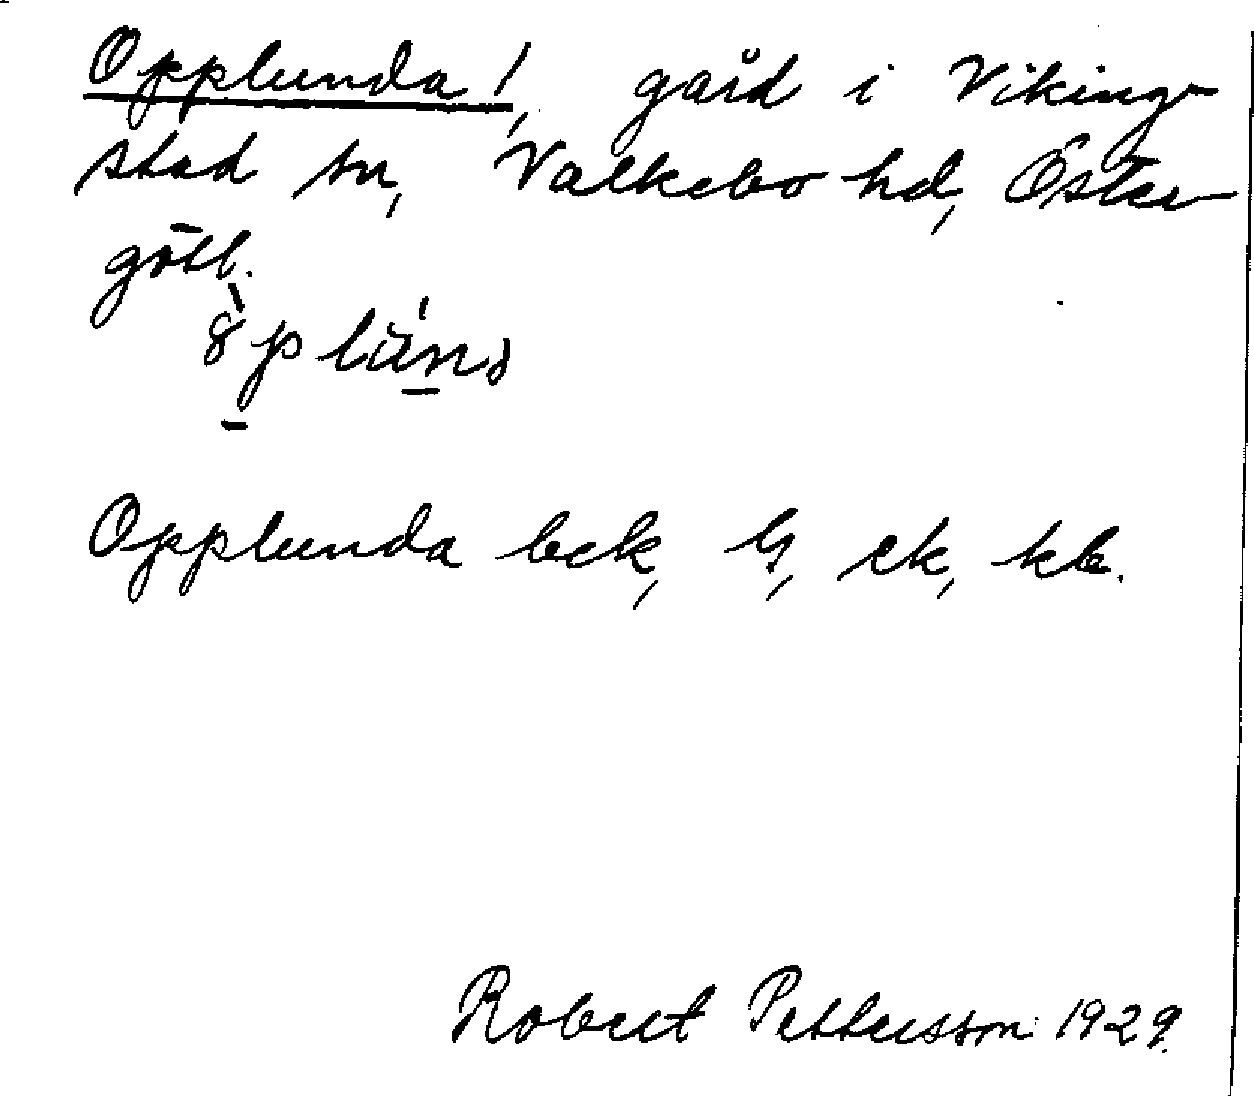 Opplunda!, gård i Viking-
stad sn, Valkebo hd, Öster-
götl.
Opplunda bck, G, ek, kb.
Robert Pettersson 1929.